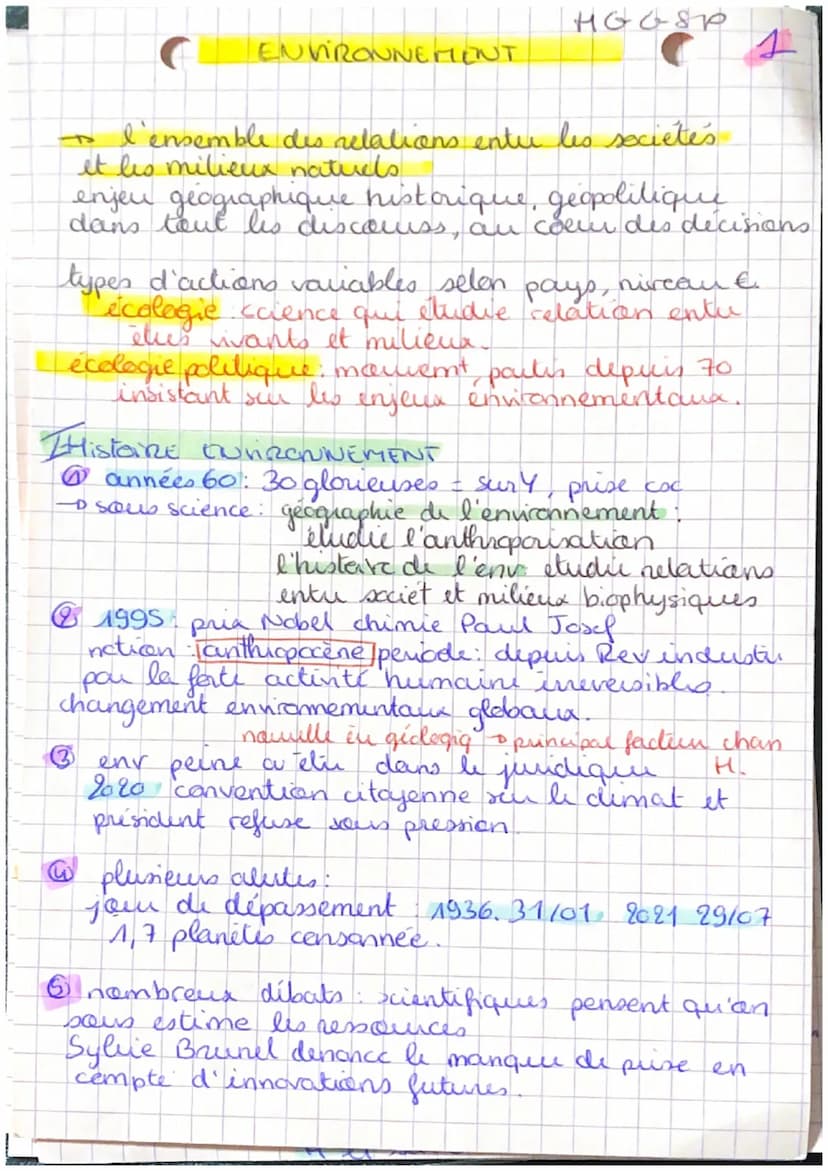 HGGSP
ENVIRONNEMENT
1
→ l'ensemble des relations entre les sociétés
et les milieux naturels
enjeu géographique historique, géopolitique
dans tout les discours, au coeur des décisions
types d'actions variables selon pays, niveau €
écologie science qui étudie relation entre
êtres vivants et milieux.
écologie politique : mouvemt, partis depuis 70
insistant sur les enjeux environnementaux.
I Histoire ENVIRONNEMENT
① années 60 : 30 glorieuses = sur , prise
→ sous science : géographie de l'environnement :
étudie l'anthroporisation
l'histoire de l'env étudie relations
entre sociét et milieux biophysiques
② 1995 : prix Nobel chimie Paul Josef
notion : anthropocène periode : depuis Rev industri
par la forte activité humaine irreversibles.
changement environnementaux globaux.
nouvelle ère géologiq → principal facteur chan
H.
③ env peine a être dans le juridique
2020 convention citoyenne sur le climat et
président refuse sous pression.
④ plusieurs alertes :
jour de dépassement : 1936. 31/01. 2021 29/07
1,7 planètes consonnée.
⑤ nombreux débats : scientifiques pensent qu'on
sous estime les ressources
Sylvie Brunel denonce le manque de prise en
compte d'innovations futures.